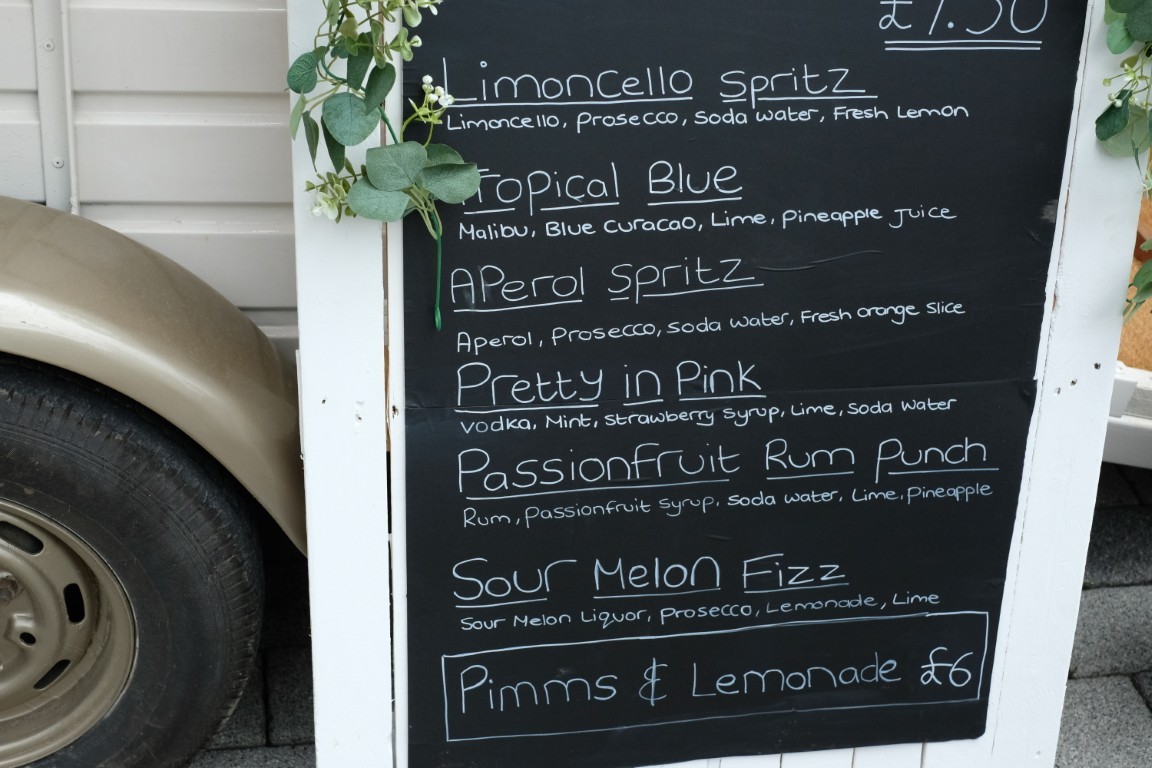 £7.50
Limoncello Spritz
Limoncello, Prosecco, Soda water, Fresh Lemon
Topical Blue
Malibu, Blue curacao, Lime, Pineapple Juice
APerol Spritz
Aperol, Prosecco, soda water, Fresh orange slice
Pretty in Pink
vodka, Mint, strawberry syrup, Lime, soda water
Passionfruit Rum Punch
Rum, passionfruit syrup, soda water, Lime, Pineapple
Sour Melon Fizz
Sour Melon Liquor, Prosecco, Lemonade, Lime
Pimms & Lemonade £6